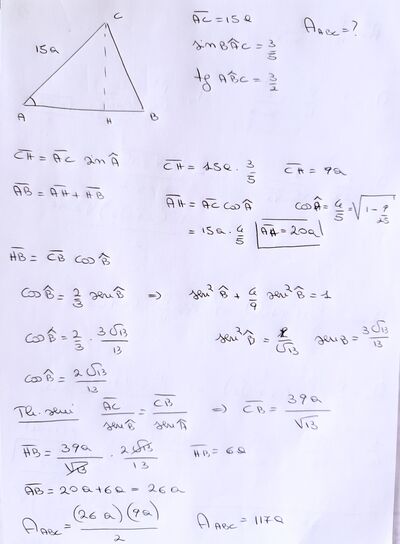 C
15a
A
H
B
AC = 15a
sin BÂC = 3/5
tg AB̂C = 3/2
A_ABC = ?
CH = AC sin Â
CH = 15a · 3/5
CH = 9a
AB = AH + HB
AH = AC cos Â
cos Â = 4/5 = √(1 - 9/25)
= 15a · 4/5
AH = 20a
HB = CB cos B̂
cos B̂ = 2/3 sen B̂ ⇒ sen² B̂ + 4/9 sen² B̂ = 1
cos B̂ = 2/3 · 3√13/13
sen² B̂ = /√13
sen B = 3√13/13
cos B̂ = 2√13/13
Th. seni
AC/sen B̂ = CB/sen Â ⇒ CB = 39a/√13
HB = 39a/√13 · 2√13/13
HB = 6a
AB = 20a + 6a = 26a
A_ABC = (26a)(9a)/2
A_ABC = 117a